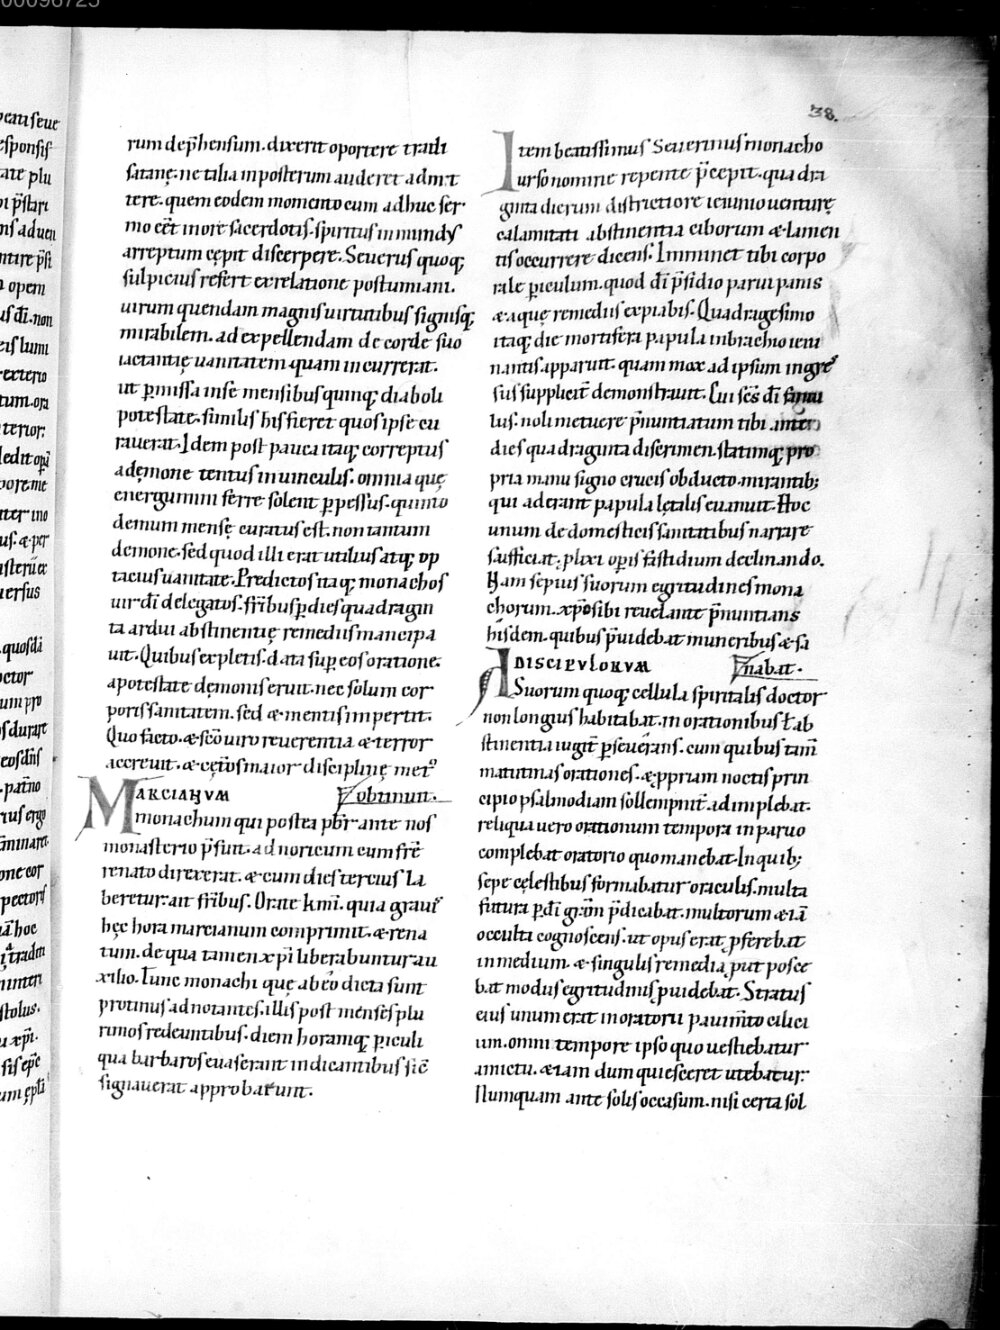 00096725
38.
rum dep̄hensum. dixerit oportere tradi
satanę. ne talia inposterum auderet admit
tere. quem eodem momento cum adhuc ser
mo eēt inore sacerdotis. spiritus inmundus
arreptum cępit discerpere. Seuerus quoq;
sulpicius refert exrelatione postumiani.
uirum quendam magnis uirtutibus signisq;
mirabilem. ad expellendam de corde suo
iactantię uanitatem quam incurrerat.
ut p̲missa inse mensibus quinq; diaboli
potestate. similis his fieret quos ipse cu
rauerat. Idem post pauca itaq; correptus
a dęmone tentus in uinculis. omnia quę
energumini ferre solent p̲pessus. quinto
demum mensę curatus est. non tantum
demone. sed quod illi erat utilius atq; op
tacius uanitate. Predictos itaq; monachos
uir dī delegatos. fr̄ibus p̲ dies quadragin
ta ardui abstinentię remediis mancipa
uit. Quibus expletis. data sup̲ eos oratione.
a potestate dęmonis eruit. nec solum cor
poris sanitatem. sed & mentis impertit.
Quo facto. & sc̄o uiro reuerentia & terror
accreuit. & cęt̄os maior disciplinę met9
MARCIANVM obtinuit.
monachum qui postea pb̄r ante nos
monasterio p̄fuit. ad noricum cum fr̄e
renato direxerat. & cum dies tercius la
beretur. ait fr̄ibus. Orate km̄i. quia grauis
hęc hora marcianum comprimit. & rena
tum. de qua tamen xp̄i liberabuntur au
xilio. Tunc monachi quę ab eo dicta sunt
protinus adnotantes. illis post menses plu
rimos redeuntibus. diem horamq; p̲iculi
qua barbaros euaserant indicantibus sic̄
signauerat approbarunt.
Item beatissimus Seuerinus monacho
urso nomine repente p̄cepit. qua dra
ginta dierum districtiore ieiunio uenturę
calamitati abstinentia ciborum & lamen
tis occurrere dicens. Imminet tibi corpo
rale p̲iculum. quod dī p̄sidio parui panis
& aquę remediis expiabis. Quadragesimo
itaq; die mortifera papula inbrachio ieiu
nantis apparuit. quam mox ad ipsum ingres
sus supplicit̄ demonstrauit. Cui sc̄s dī famu
lus. noli metuere p̄nuntiatum tibi ante
dies quadraginta discrimen. statimq; pro
pria manu signo crucis obducto. mirantib;
qui aderant papula lętalis euanuit. Hoc
unum de domesticis sanitatibus narrare
sufficiat. plixi op̲is fastidium declinando.
Nam sepius suorum egritudines mona
chorum. xp̄o sibi reuelante p̄nuntians
hisdem. quibus p̄uidebat muneribus & sa
A DISCIPVLORVM nabat.
Suorum quoq; cellula spiritalis doctor
non longius habitabat. in orationibus & ab
stinentia iugit̄ p̲seuerans. cum quibus tam̄
matutinas orationes. & pprium noctis prin
cipio psalmodiam sollempnit̄ adimplebat.
reliqua uero orationum tempora in paruo
complebat oratorio quo manebat. In quib;
sepe cęlestibus formabatur oraculis. multa
futura p̲ dī gr̄am p̄dicabat. multorum &iā
occulta cognoscens. ut opus erat p̲ferebat
in medium. & singulis remedia. put posce
bat modus egritudinis p̲uidebat. Stratus
eius unum erat in oratorii pauim̄to cilici
um. omni tempore ipso quo uestiebatur
amictu. &iam dum quiesceret utebatur.
Numquam ante solis occasum. nisi certa sol